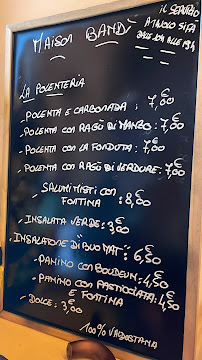 MAISON BANDÌ
IL SERVIZIO
A TAVOLO SI FA
DALLE 10H ALLE 19H
LA POLENTERIA
- POLENTA E CARBONADA : 7,00
- POLENTA CON RAGÙ DI MANZO : 7,00
- POLENTA CON LA FONDUTA : 7,00
- POLENTA CON RAGÙ DI VERDURE : 7,00
- SALUMI MISTI CON
FONTINA : 8,50
- INSALATA VERDE : 3,00
- INSALATONE DI "BUO MAT" : 6,50
- PANINO CON BOUDEUN : 4,50
- PANINO CON PANCIOLATA : 4,50
E FONTINA
- DOLCE : 3,00
100% VALDOSTANA